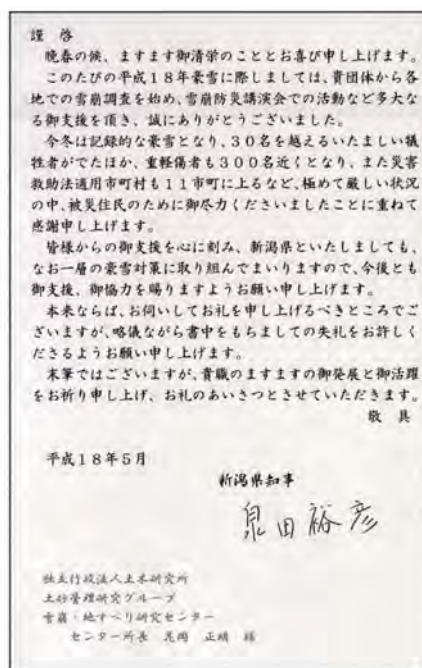 謹 啓
晩春の候、ますます御清栄のこととお喜び申し上げます。
このたびの平成18年豪雪に際しましては、貴団体から各
地での雪崩調査を始め、雪崩防災講演会での活動など多大な
る御支援を頂き、誠にありがとうございました。
今冬は記録的な豪雪となり、30名を越えるいたましい犠
牲者がでたほか、重軽傷者も300名近くとなり、また災害
救助法適用市町村も11市町に上るなど、極めて厳しい状況
の中、被災住民のために御尽力くださいましたことに重ねて
感謝申し上げます。
皆様からの御支援を心に刻み、新潟県といたしましても、
なお一層の豪雪対策に取り組んでまいりますので、今後とも
御支援、御協力を賜りますようお願い申し上げます。
本来ならば、お伺いしてお礼を申し上げるべきところでご
ざいますが、略儀ながら書中をもちましての失礼をお許しく
ださるようお願い申し上げます。
末筆ではございますが、貴職のますますの御発展と御活躍
をお祈り申し上げ、お礼のあいさつとさせていただきます。
敬 具
平成18年5月
新潟県知事
泉田裕彦
独立行政法人土木研究所
土砂管理研究グループ
雪崩・地すべり研究センター
センター所長 花岡 正明 様